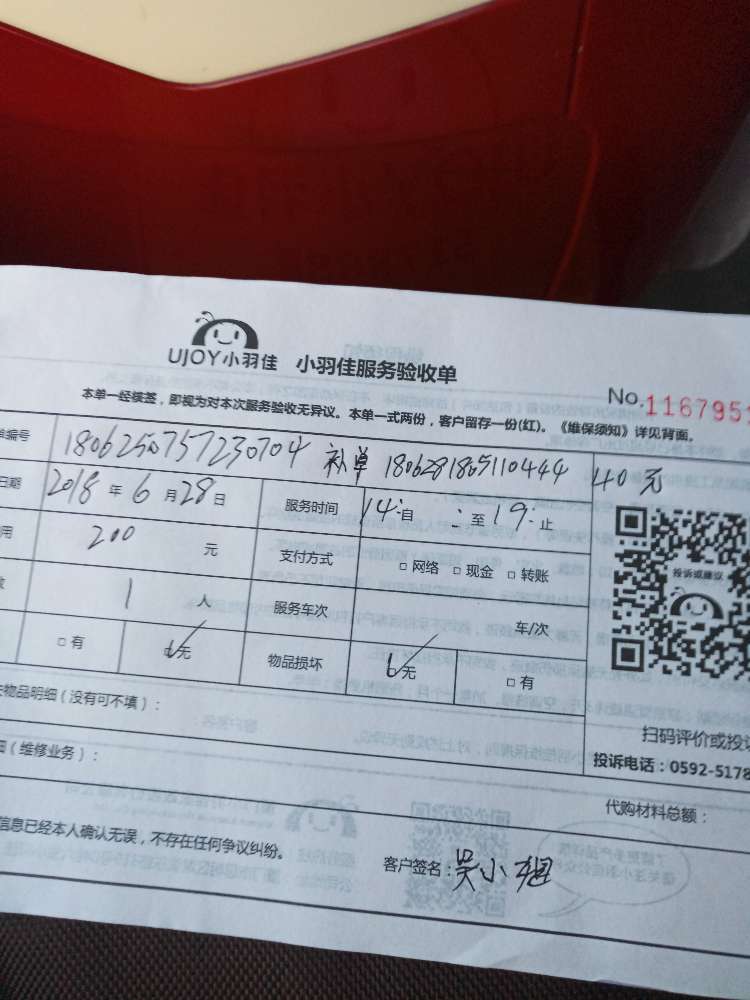 UJOY小羽佳 小羽佳服务验收单
No.1167951
本单一经核签，即视为对本次服务验收无异议。本单一式两份，客户留存一份(红)。《维保须知》详见背面。
单编号 1806250757230704 补单 1806281805110444 40元
日期 2018 年 6 月 28 日 服务时间 14:自 : 至 19: 止
用 200 元 支付方式 □ 网络 □ 现金 □ 转账
数 1 人 服务车次 车/次
□ 有 ☑无 物品损坏 ☑无 □ 有
投诉或建议
物品明细（没有可不填）：
扫码评价或投诉
（维修业务）：
投诉电话：0592-5178
代购材料总额：
信息已经本人确认无误，不存在任何争议纠纷。
客户签名：吴小姐